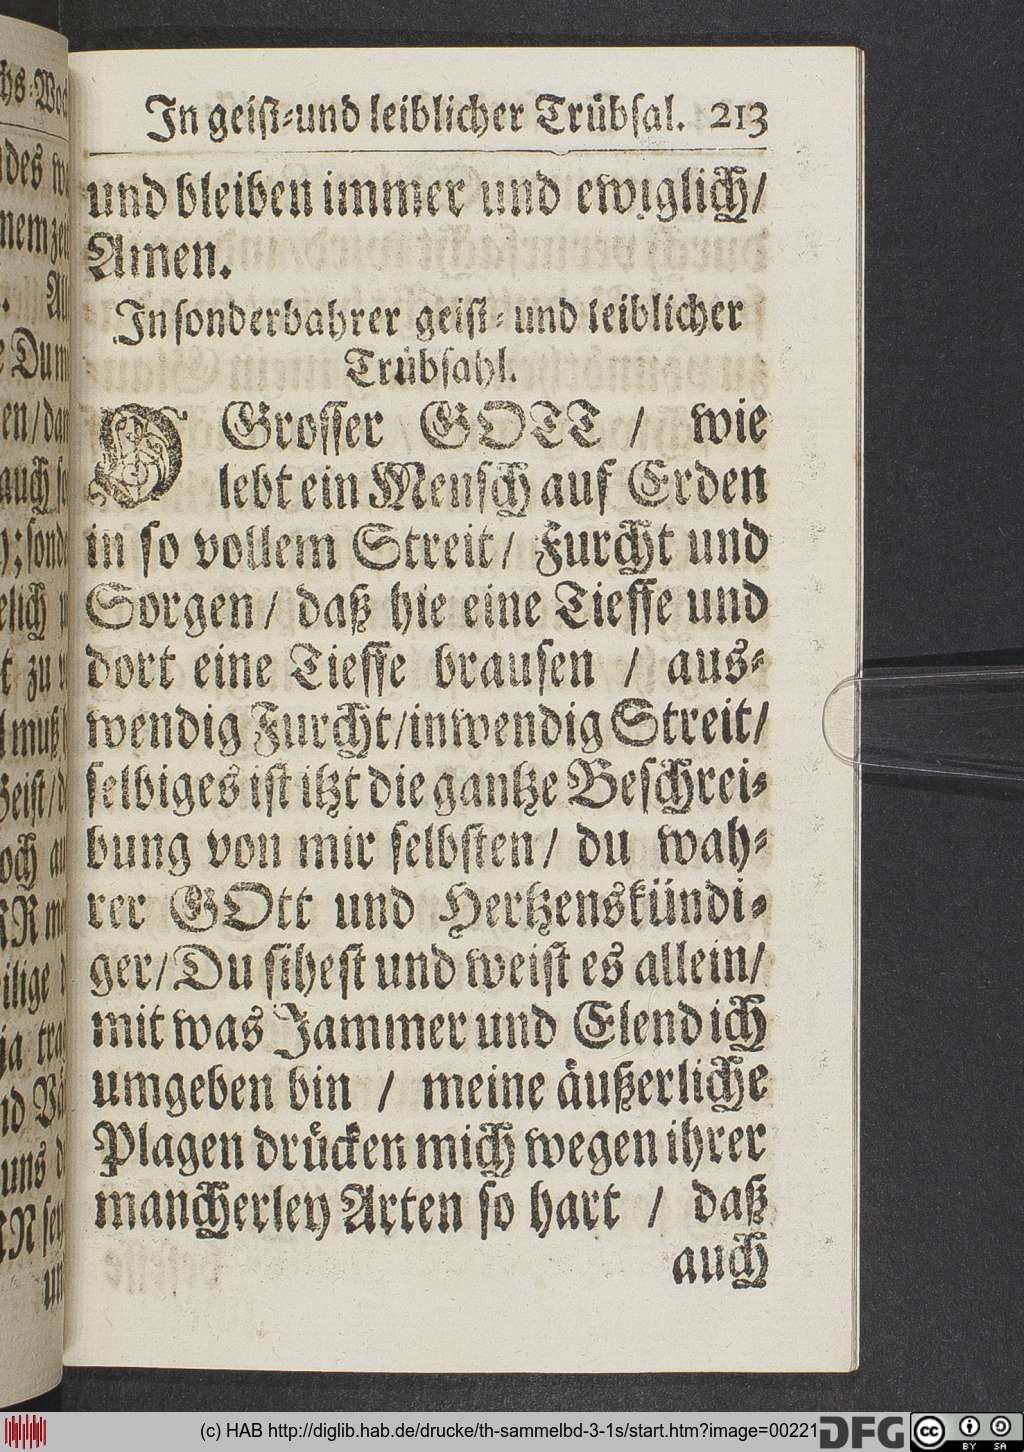 In geist-und leiblicher Trübsal. 213
und bleiben immer und ewiglich/
Amen.
In sonderbahrer geist- und leiblicher
Trübsahl.
O Grosser GOTT / wie
lebt ein Mensch auf Erden
in so vollem Streit/ Furcht und
Sorgen/ daß hie eine Tieffe und
dort eine Tieffe brausen / aus-
wendig Furcht/inwendig Streit/
selbiges ist itzt die gantze Beschrei-
bung von mir selbsten/ du wah-
rer GOtt und Hertzenskündi-
ger/ Du sihest und weist es allein/
mit was Jammer und Elend ich
umgeben bin / meine äußerliche
Plagen drücken mich wegen ihrer
mancherley Arten so hart / daß
auch
(c) HAB http://diglib.hab.de/drucke/th-sammelbd-3-1s/start.htm?image=00221
DFG
cc BY SA